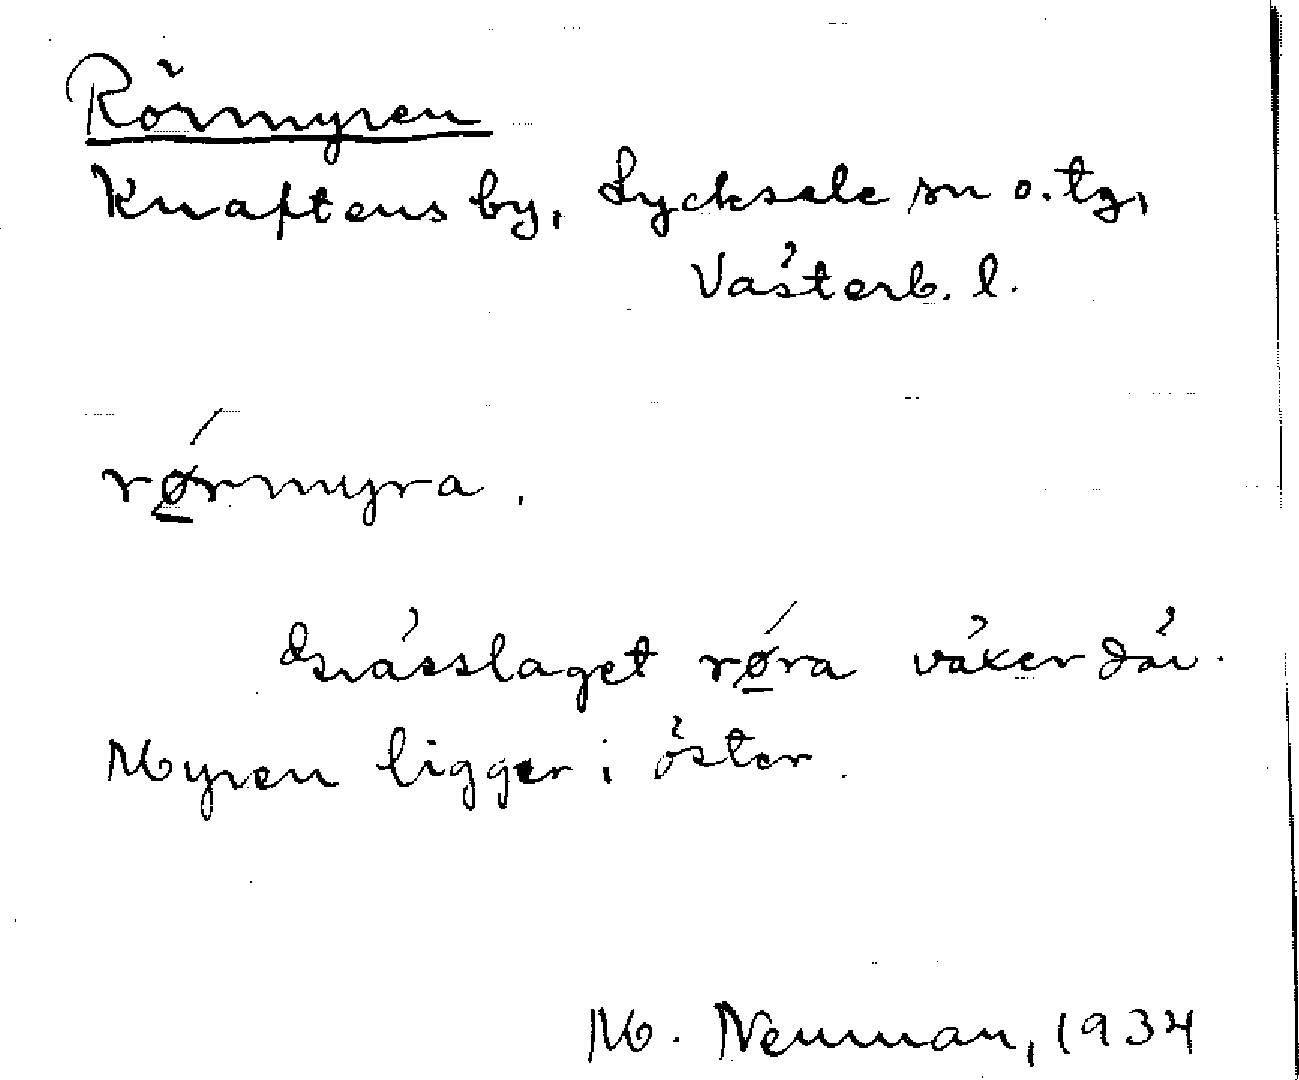 Rörmyren
Knaftens by, Lycksele sn o. tg,
Västerb. l.
rørmyra.
Grässlaget røra växer där.
Myren ligger i öster.
M. Neuman, 1934